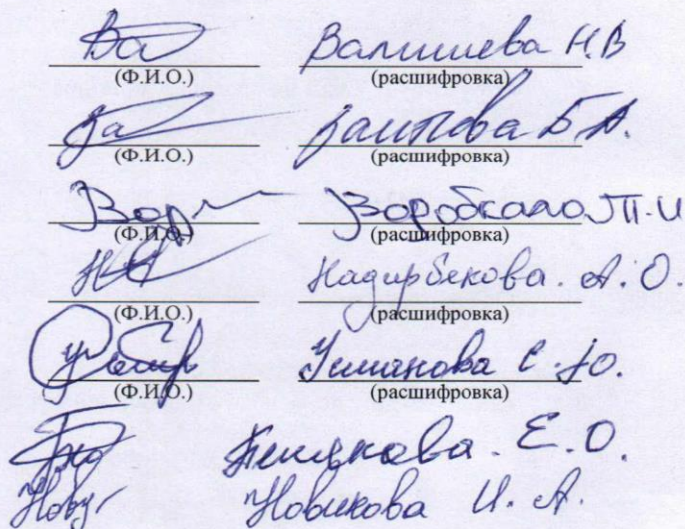 Валишева Н.В
(Ф.И.О.) (расшифровка)
Заитова Б.А.
(Ф.И.О.) (расшифровка)
Воробкало Т.И
(Ф.И.О.) (расшифровка)
Надирбекова. А. О.
(Ф.И.О.) (расшифровка)
Усманова С.Ю.
(Ф.И.О.) (расшифровка)
Е.О.
Новикова И. А.